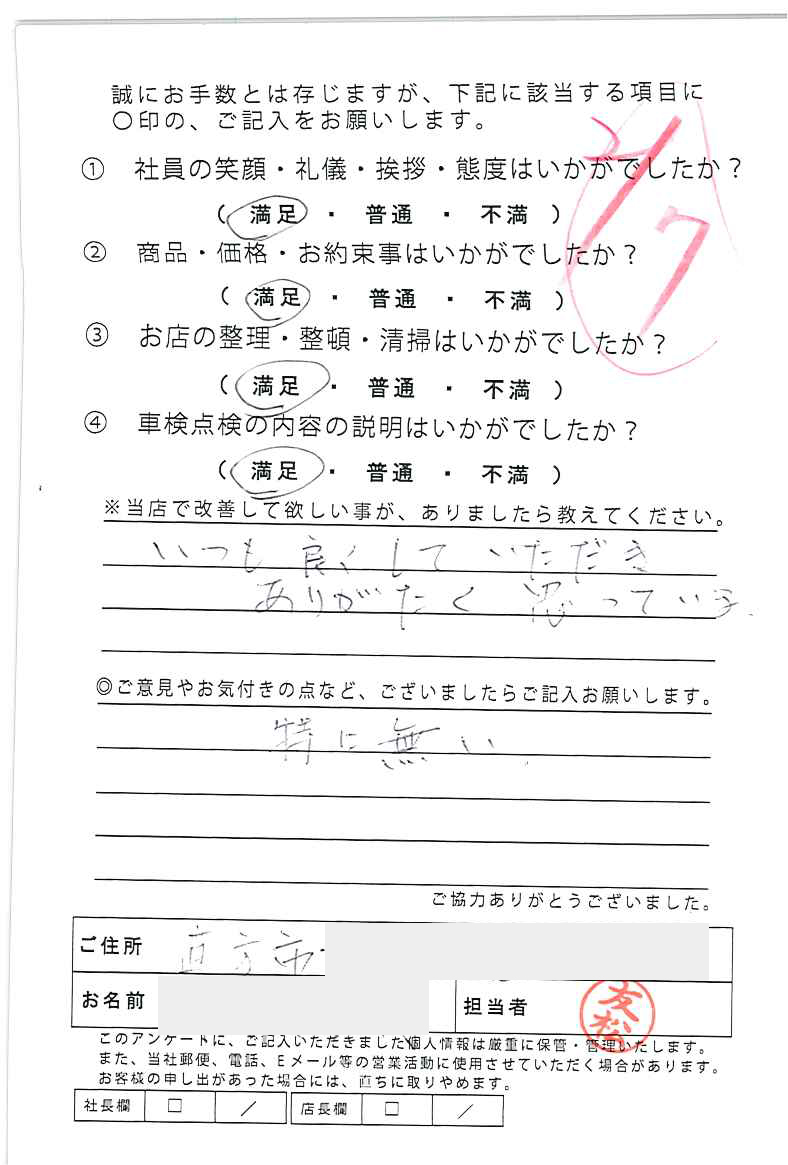 誠にお手数とは存じますが、下記に該当する項目に
〇印の、ご記入をお願いします。
2/7
① 社員の笑顔・礼儀・挨拶・態度はいかがでしたか？
（ 満足 ・ 普通 ・ 不満 ）
② 商品・価格・お約束事はいかがでしたか？
（ 満足 ・ 普通 ・ 不満 ）
③ お店の整理・整頓・清掃はいかがでしたか？
（ 満足 ・ 普通 ・ 不満 ）
④ 車検点検の内容の説明はいかがでしたか？
（ 満足 ・ 普通 ・ 不満 ）
※当店で改善して欲しい事が、ありましたら教えてください。
いつも良くしていただき
ありがたく思っている.
◎ご意見やお気付きの点など、ございましたらご記入お願いします。
特に無い.
ご協力ありがとうございました。
ご住所 直方市
お名前 担当者 友松
このアンケートに、ご記入いただきました個人情報は厳重に保管・管理いたします。
また、当社郵便、電話、Eメール等の営業活動に使用させていただく場合があります。
お客様の申し出があった場合には、直ちに取りやめます。
社長欄 □ ／ 店長欄 □ ／